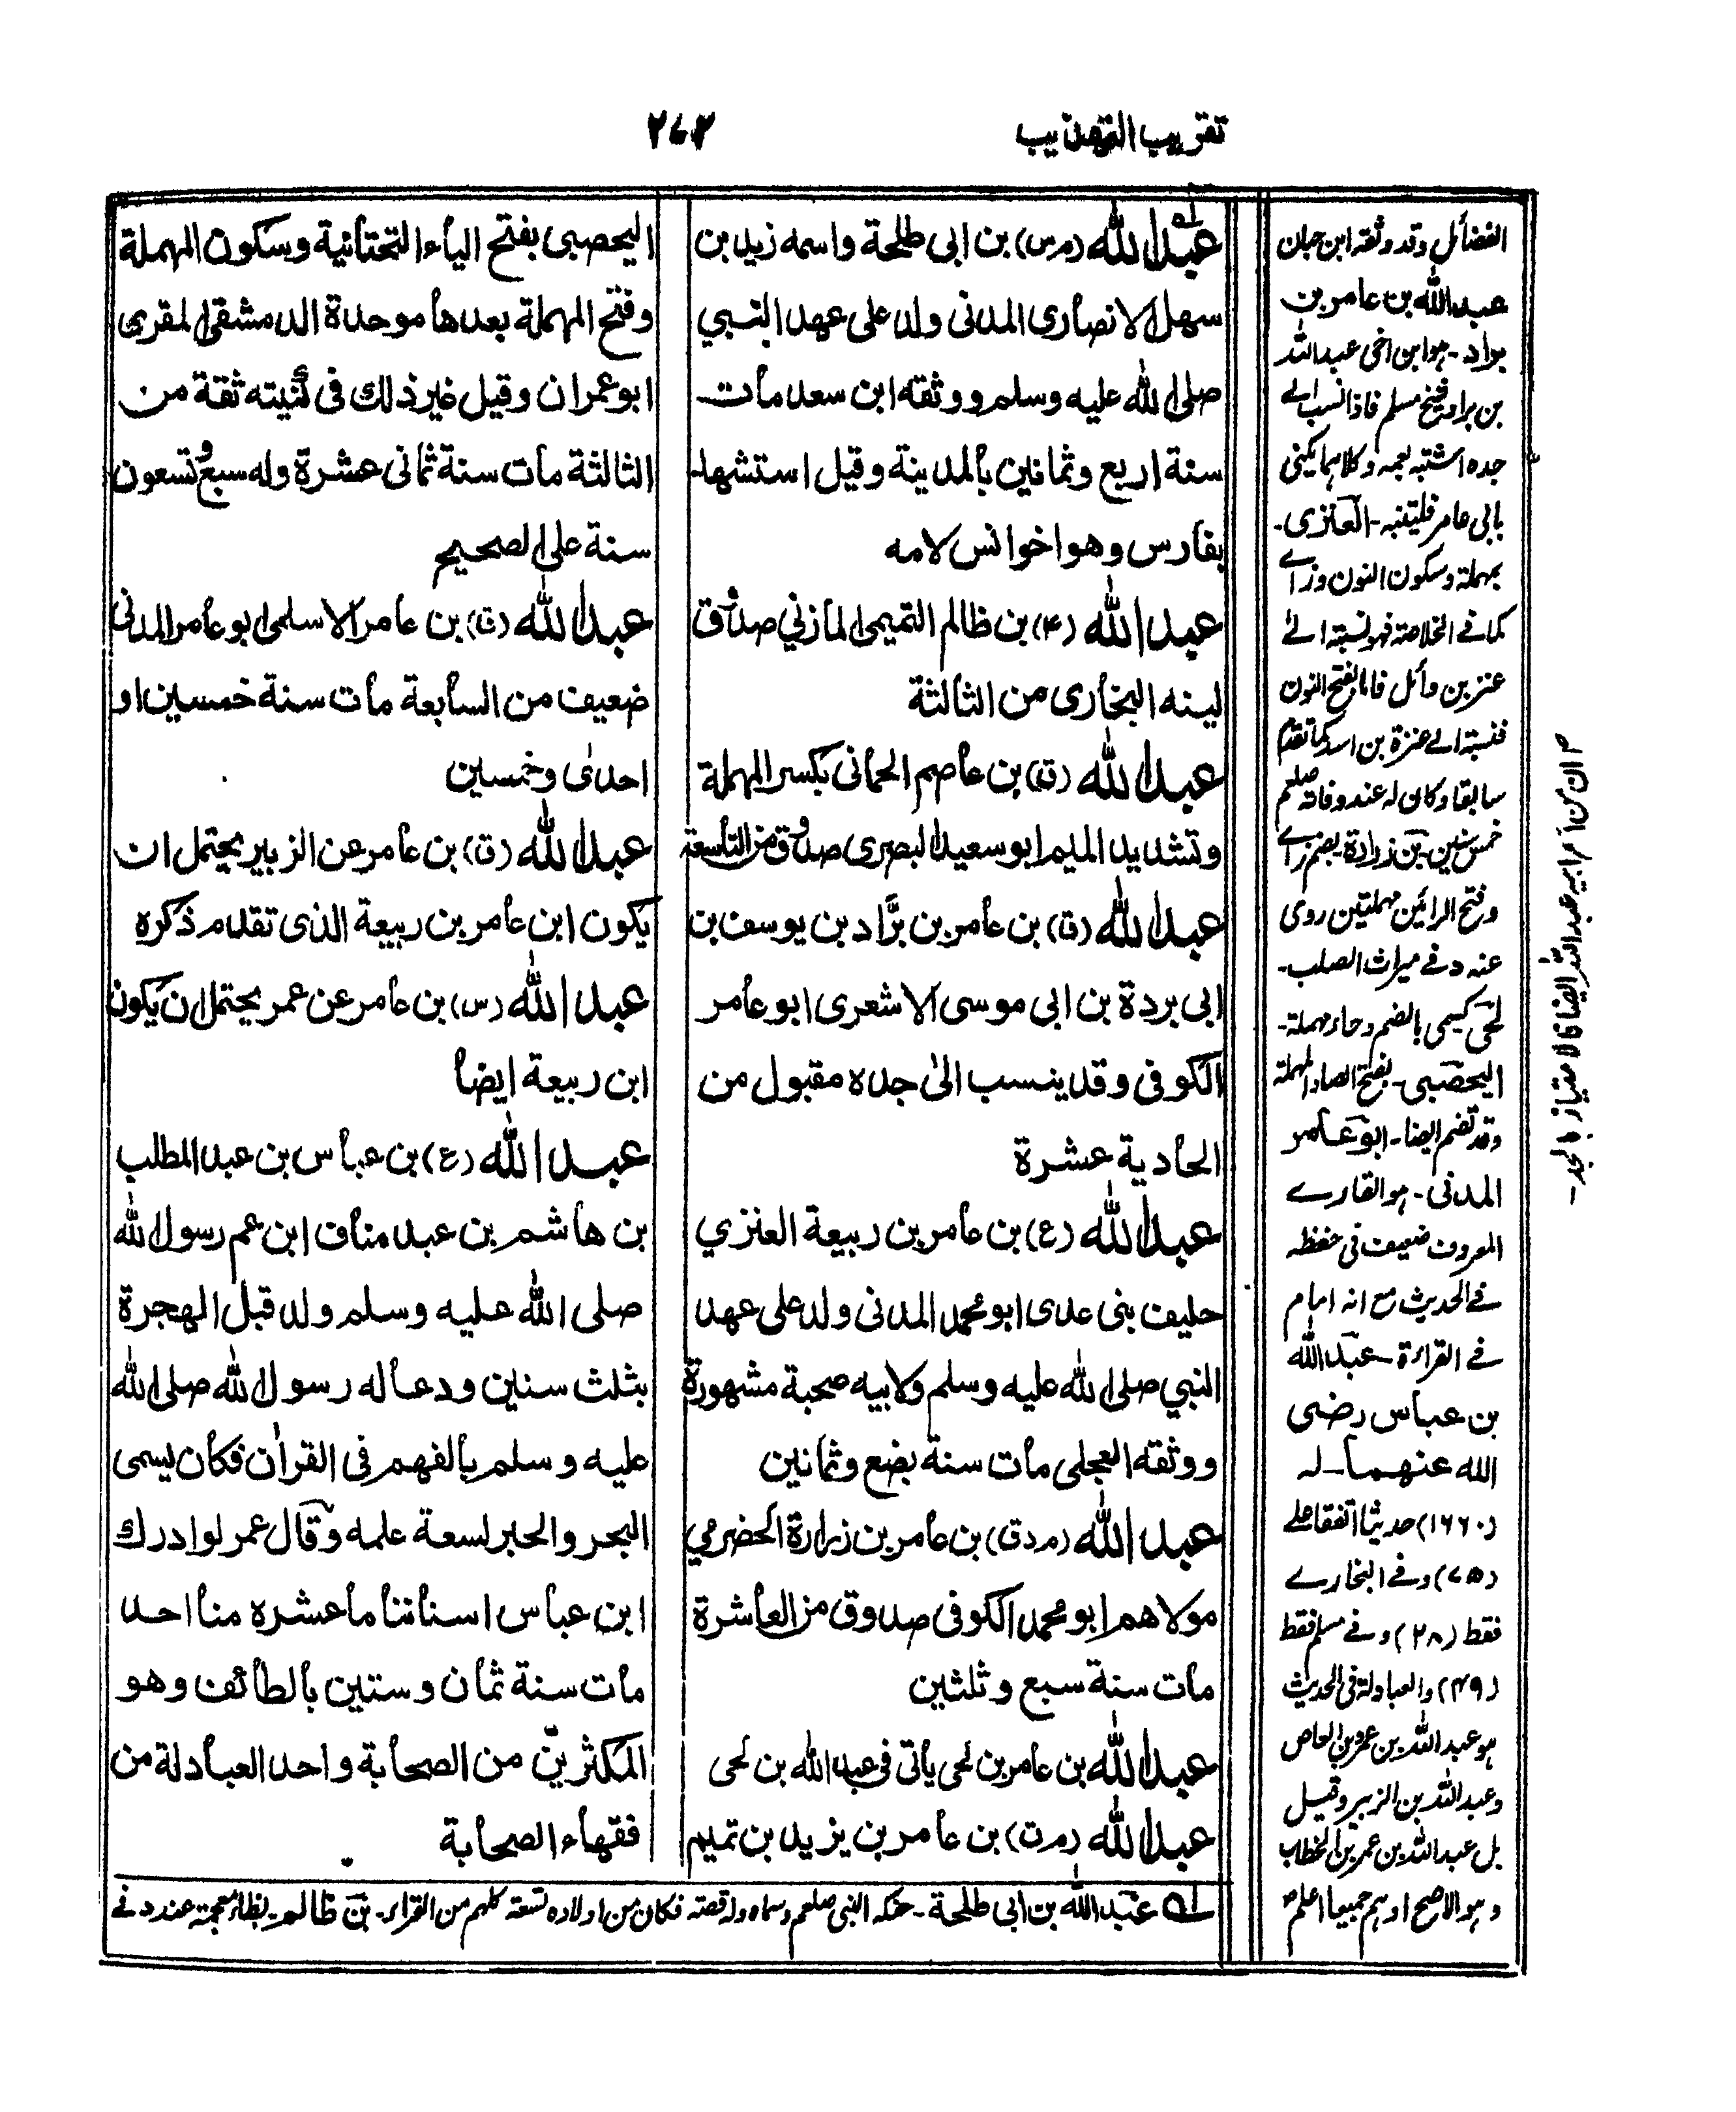 تقريب التهذيب
٢٧٢
عبد الله (م س) بن ابى طلحة واسمه زيد بن
سهل الانصارى المدنى ولد على عهد النبي
صلى الله عليه وسلم ووثقه ابن سعد مات
سنة اربع وثمانين بالمدينة وقيل استشهد
بفارس وهو اخو انس لامه
عبد الله (٤) بن ظالم التميمى المازني صدوق
لينه البخارى من الثالثة
عبد الله (ق) بن عاصم الحمانى بكسر المهملة
وتشديد الميم ابو سعيد البصرى صدوق من التاسعة
عبد الله (ق) بن عامر بن برَّاد بن يوسف بن
ابى بردة بن ابى موسى الاشعرى ابو عامر
الكوفى وقد ينسب الى جده مقبول من
الحادية عشرة
عبد الله (ع) بن عامر بن ربيعة العنزي
حليف بنى عدى ابو محمد المدنى ولد على عهد
النبي صلى الله عليه وسلم ولابيه صحبة مشهورة
ووثقه العجلى مات سنة بضع وثمانين
عبد الله (م د ق) بن عامر بن زرارة الحضرمي
مولاهم ابو محمد الكوفى صدوق من العاشرة
مات سنة سبع وثلثين
عبد الله بن عامر بن لحى يأتى فى عبد الله بن لحى
عبد الله (م ت) بن عامر بن يزيد بن تميم
اليحصبى بفتح الياء التحتانية وسكون المهملة
وفتح المهملة بعدها موحدة الدمشقى المقرى
ابو عمران وقيل غير ذلك فى كنيته ثقة من
الثالثة مات سنة ثمانى عشرة وله سبع وتسعون
سنة على الصحيح
عبد الله (ق) بن عامر الاسلمى ابو عامر المدنى
ضعيف من السابعة مات سنة خمسين او
احدى وخمسين
عبد الله (ق) بن عامر عن الزبير يحتمل ان
يكون ابن عامر بن ربيعة الذى تقدم ذكره
عبد الله (س) بن عامر عن عمر يحتمل ان يكون
ابن ربيعة ايضا
عبد الله (ع) بن عباس بن عبد المطلب
بن هاشم بن عبد مناف ابن عم رسول الله
صلى الله عليه وسلم ولد قبل الهجرة
بثلث سنين ودعا له رسول الله صلى الله
عليه وسلم بالفهم فى القران فكان يسمى
البحر والحبر لسعة علمه وقال عمر لو ادرك
ابن عباس اسناننا ما عشره منا احد
مات سنة ثمان وستين بالطائف وهو
المكثرين من الصحابة واحد العبادلة من
فقهاء الصحابة
له عبد الله بن ابى طلحة - حنكه النبى صلعم وسماه وله قصته فكان من اولاده تسعة كلهم من القراء - بن ظالم - بظاء معجمة عند د فے
الفضائل وقد وثقه ابن حبان
عبد الله بن عامر بن
براد - هو ابن اخى عبد الله
بن براد شيخ مسلم فاذا نسب الے
جده اشتبه بعمه وكلاهما يكنى
بابى عامر فليتنبه - العنزى -
بمهملة وسكون النون وزاے
كما فے الخلاصة فهو نسبته الے
عنز بن وائل فاما بفتح النون
فنسبته الے عنزة بن اسد كما تقدم
سابقا وكان له عند وفاته صلعم
خمس سنين - بن زرارة - بضم زاے
وفتح الرائين مهملتين روى
عنه د فے ميراث الصلب -
لحى كسمى بالضم وحاء مهملة -
اليحصبى - بفتح الصاد المهملة
وقد تضم ايضا - ابو عامر
المدنى - هو القارے
المعروف ضعيف فى حفظه
فے الحديث مع انه امام
فے القراءة - عبد الله
بن عباس رضى
الله عنهما - له
(١٦٦٠) حديثا اتفقا علے
(٧٥) وفے البخارے
فقط (٢٨) وفے مسلم فقط
(٤٩) والعبادلة فى الحديث
هو عبد الله بن عمرو بن العاص
وعبد الله بن الزبير وقيل
بل عبد الله بن عمر بن الخطاب
وهو الاصح او هم جميعا اعلم
ان من امرابيه عبد الله ايضا فالامتياز بالجد -